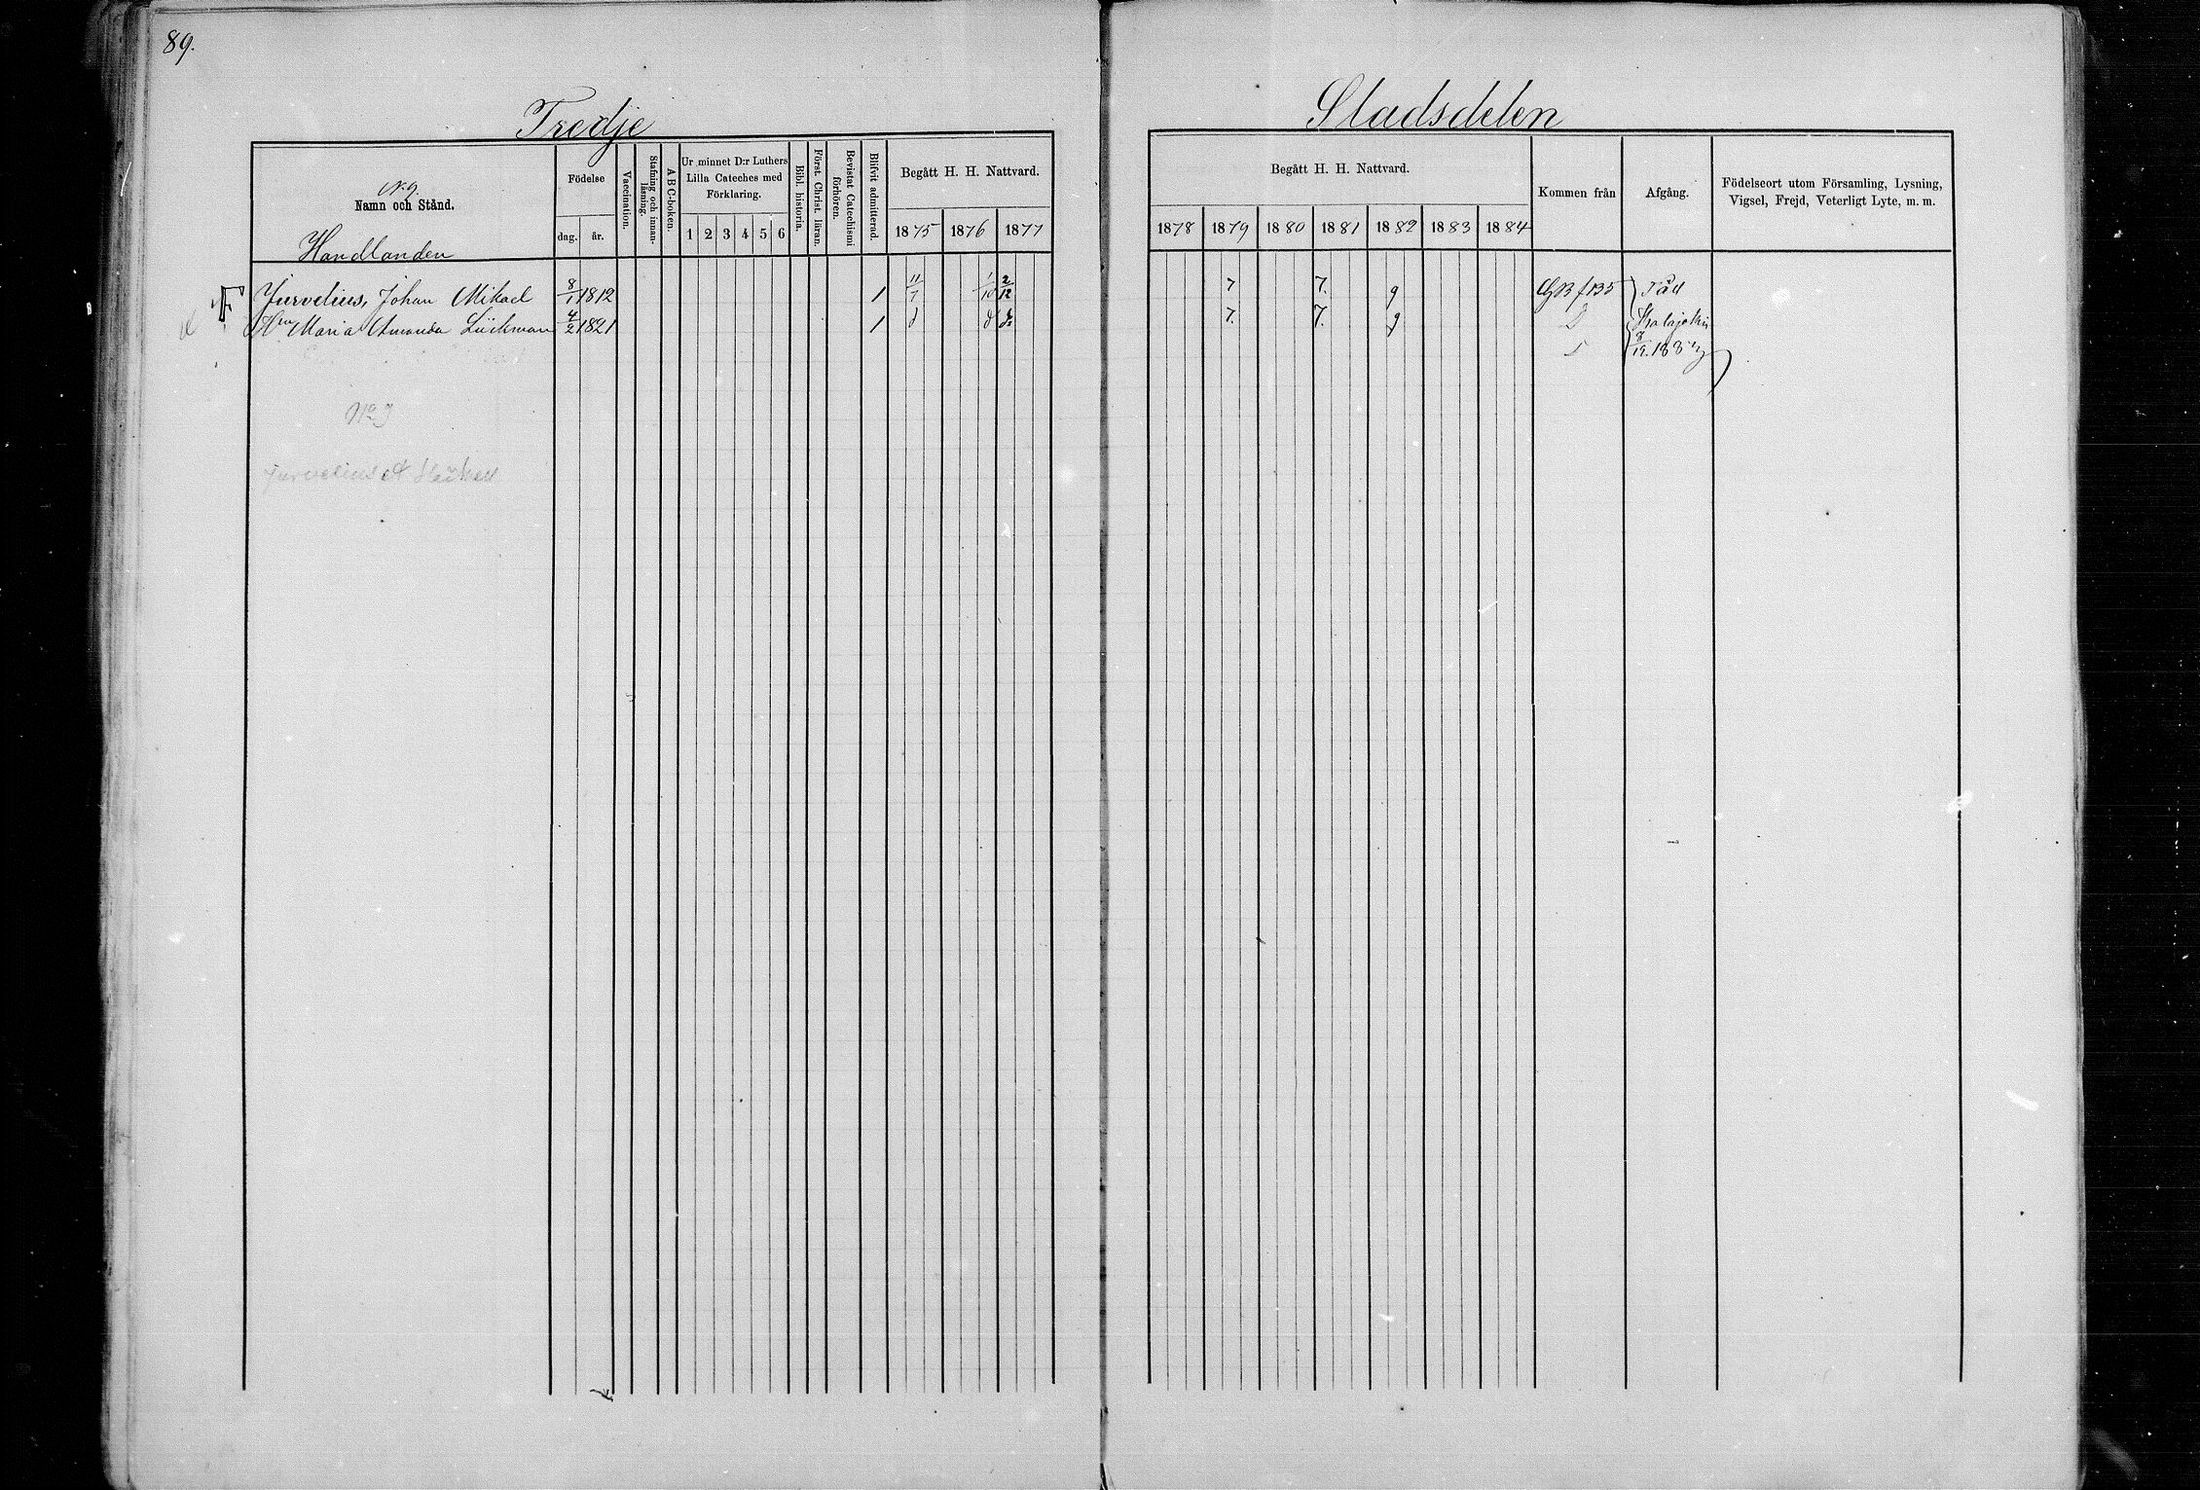 89.
Tredje
Stadsdelen
N:9.
Namn och Stånd.
Födelse
dag. år.
Vaccination.
Stafning och innanläsning.
A B C-boken.
Ur minnet D:r Luthers
Lilla Cateches med
Förklaring.
1 2 3 4 5 6
Bibl. historia.
Först. Christ. läran.
Bevistat Catechismi förhören.
Blifvit admitterad.
Begått H. H. Nattvard.
1875 1876 1877
Begått H. H. Nattvard.
1878 1879 1880 1881 1882 1883 1884
Kommen från
Afgång.
Födelseort utom Församling, Lysning,
Vigsel, Frejd, Veterligt Lyte, m. m.
Handlanden
F Jurvelius, Johan Mikael 8/1 1812 1 11/7 1/10 2/12 7 7. 9 GB f 135
Hru Maria Amanda Lückman 4/2 1821 1 7. 7. 9 Kalajoki
No 9
Jurvelius